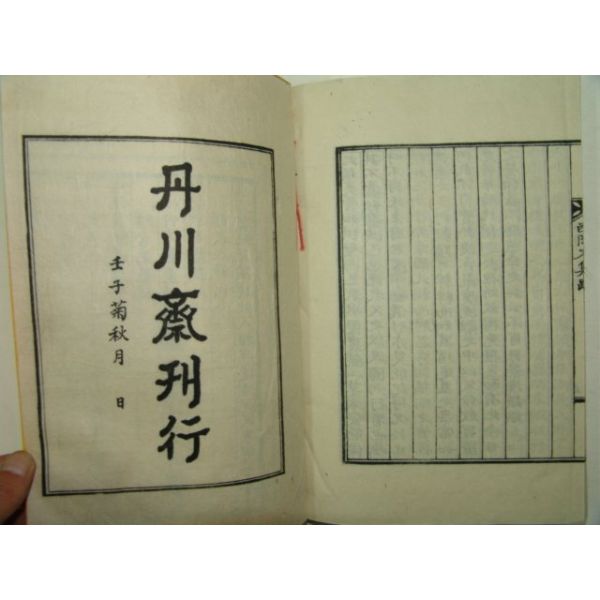 文集
丹川齋刊行
壬子菊秋月 日